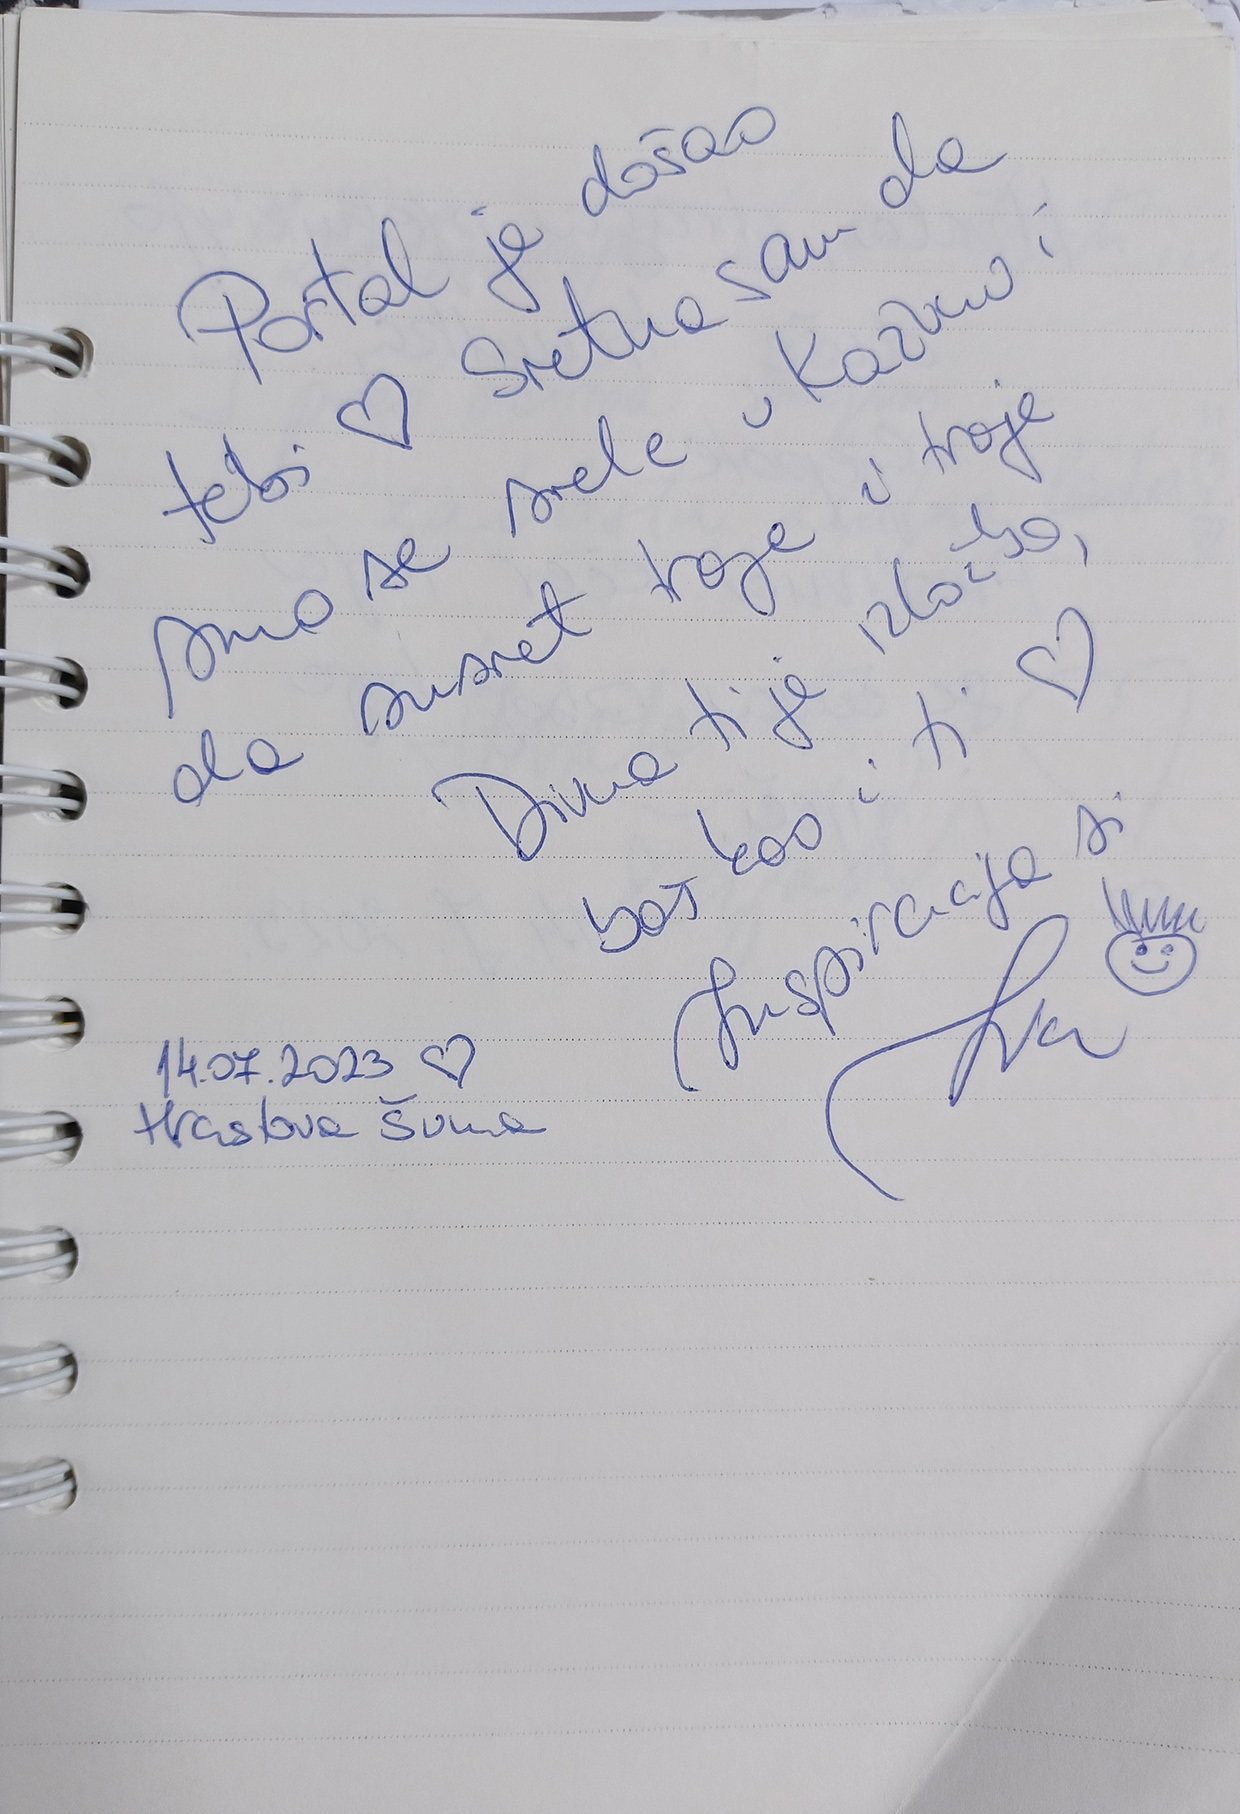 Portal je došao
tebi ♡ Sretna sam da
smo se srele u Kaživo i
da susret troje i troje
Divna ti je izložba,
baš kao i ti ♡
Inspiracija si
Iva
14.07.2023 ♡
Hrastova Šuma